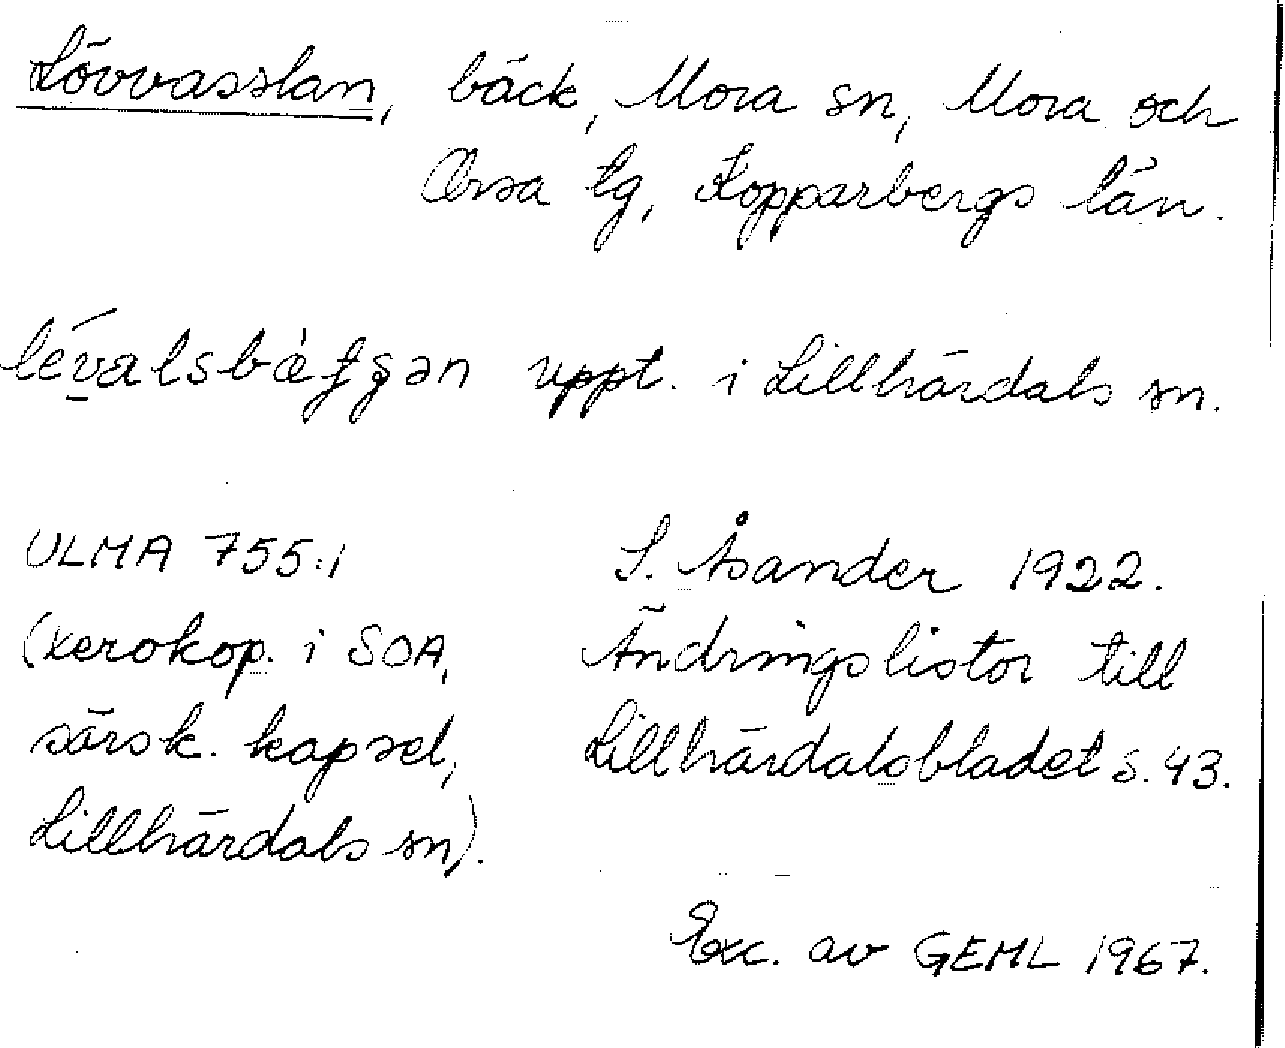 Lövvasslan, bäck, Mora sn, Mora och
Orsa tg, Kopparbergs län.
uppt. i Lillhärdals sn.
ULMA 755:1
(xerokop. i SOA,
särsk. kapsel,
Lillhärdals sn).
S. Åsander 1922.
Ändringslistor till
Lillhärdalsbladet s. 43.
Exc. av GEML 1967.